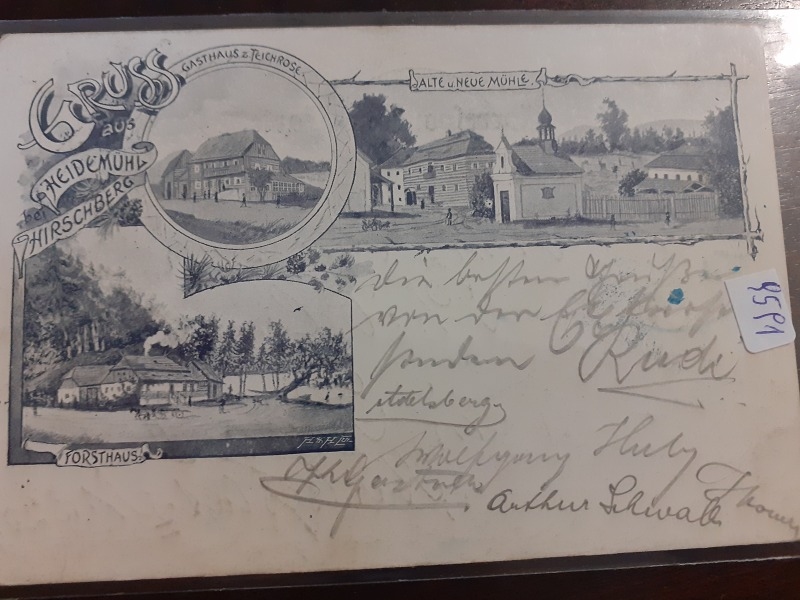 GRUSS
aus
HEIDEMÜHL
bei
HIRSCHBERG
GASTHAUS z. TEICHROSE.
ALTE u. NEUE MÜHLE.
FORSTHAUS.
die besten Grüße
von der
senden Rudi
Adelsberg
Wolfgang
Arthur Schwalb
Thomas